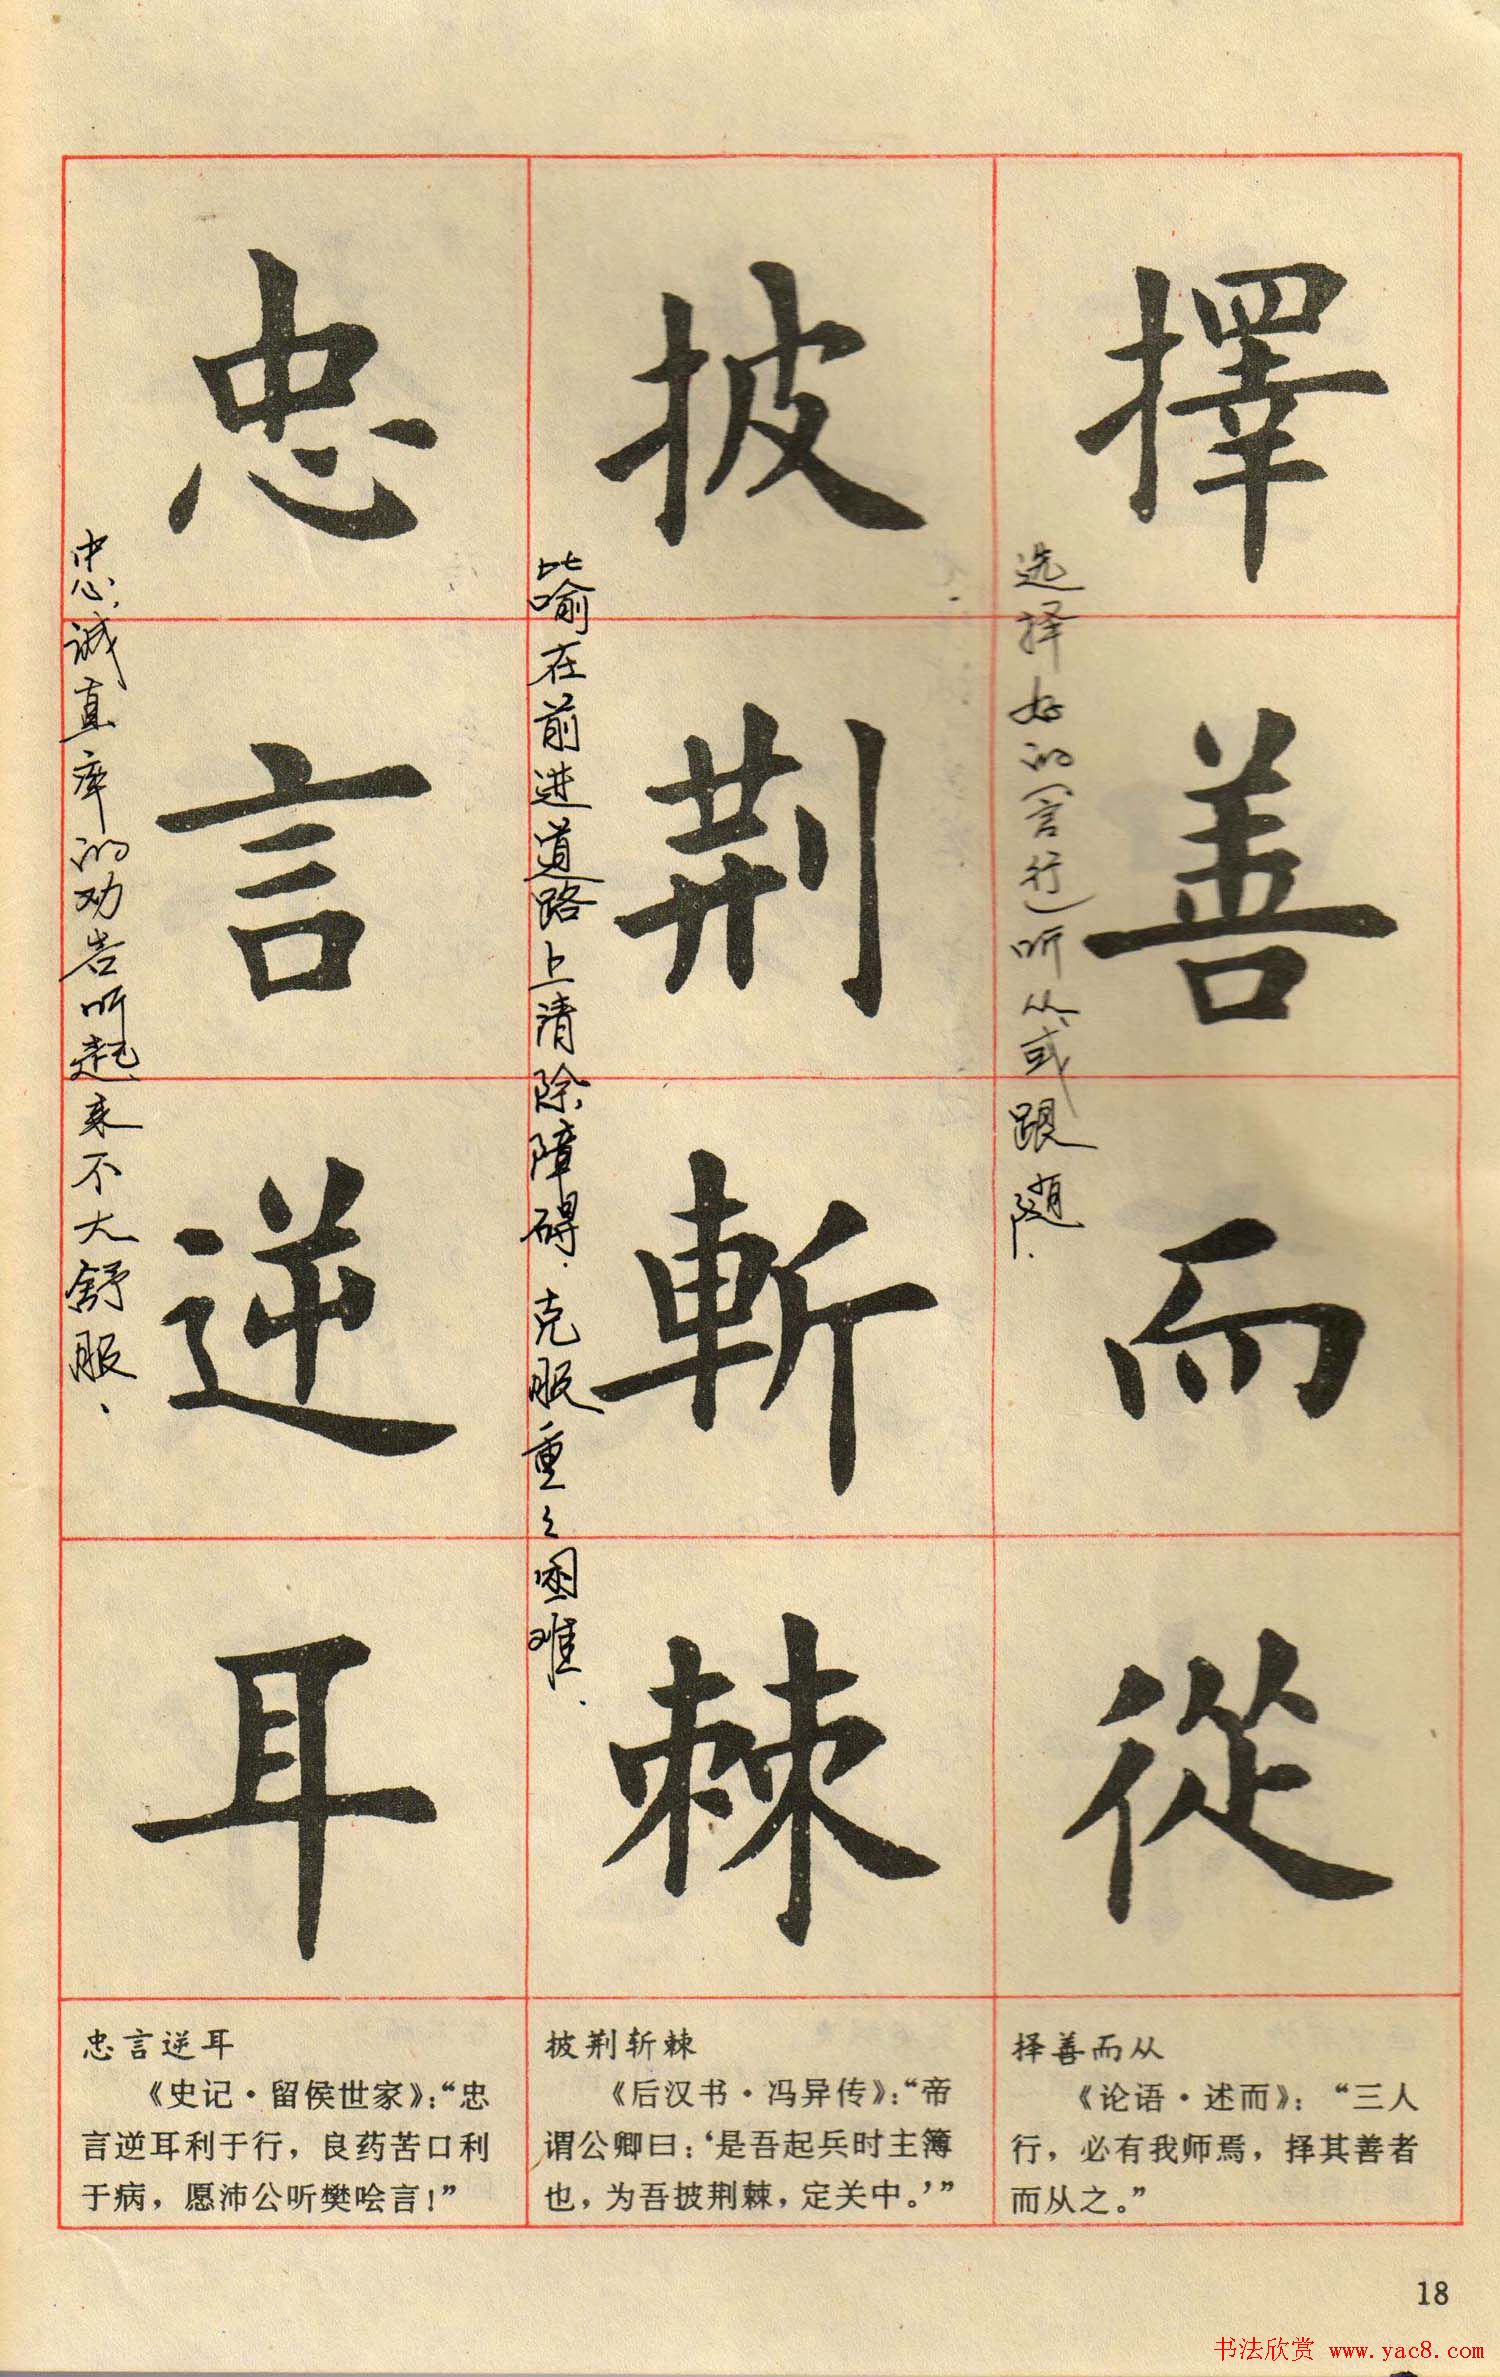 擇善而從
选择好的(言行)听从或跟随.
披荆斬棘
比喻在前进道路上清除障碍.克服重々困难.
忠言逆耳
忠诚直率的劝告听起来不大舒服.
择善而从
《论语·述而》：“三人
行，必有我师焉，择其善者
而从之。”
披荆斩棘
《后汉书·冯异传》：“帝
谓公卿曰：‘是吾起兵时主簿
也，为吾披荆棘，定关中。’”
忠言逆耳
《史记·留侯世家》：“忠
言逆耳利于行，良药苦口利
于病，愿沛公听樊哙言！”
18
书法欣赏 www.yac8.com